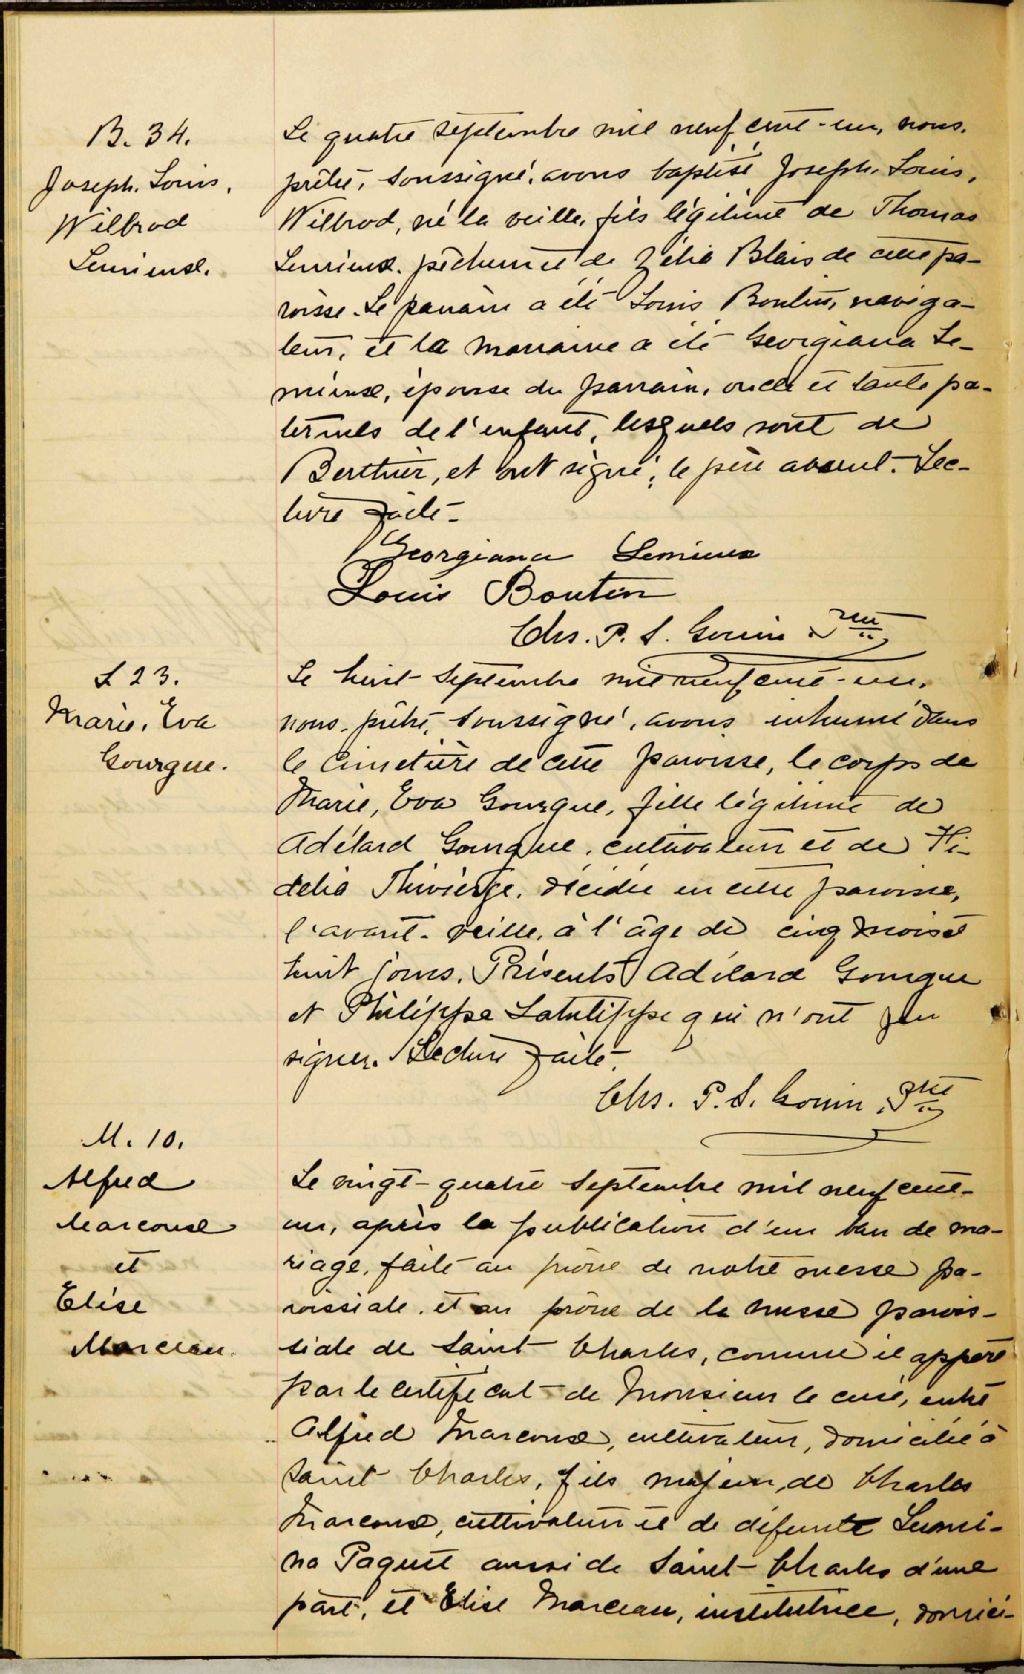 B. 34.
Joseph, Louis,
Wilbrod
Lemieux.
Le quatre septembre mil neuf cent-un, nous,
prêtre, soussigné, avons baptisé Joseph, Louis,
Wilbrod, né la veille, fils légitime de Thomas
Lemieux, pêcheur et de Zélia Blais de cette pa-
roisse. Le parrain a été Louis Boutin, naviga-
teur, et la marraine a été Georgiana Le-
mieux, épouse du parrain, oncle et tante pa-
ternels de l'enfant, lesquels sont de
Berthier, et ont signé; le père absent. Lec-
ture faite.
Georgiana Lemieux
Louis Boutin
Chs. P. S. Gouin Ptre
S 23.
Marie, Eva
Gourgue.
Le huit septembre mil neuf cent-un,
nous, prêtre, soussigné, avons inhumé dans
le cimetière de cette paroisse, le corps de
Marie, Eva Gourgue, fille légitime de
Adélard Gourgue, cultivateur et de Fi-
delia Thivierge, décédée en cette paroisse,
l'avant-veille, à l'âge de cinq mois et
huit jours. Présents Adélard Gourgue
et Philippe Latulippe qui n'ont pu
signer. Lecture faite.
Chs. P. S. Gouin, Ptre
M. 10.
Alfred
Marcoux
et
Elise
Marceau.
Le vingt-quatre septembre mil neuf cent-
un, après la publication d'un ban de ma-
riage, faite au prône de notre messe pa-
roissiale, et au prône de la messe parois-
siale de Saint Charles, comme il appert
par le certificat de Monsieur le curé, entre
Alfred Marcoux, cultivateur, domicilié à
Saint Charles, fils majeur, de Charles
Marcoux, cultivateur et de défunte Lumi-
na Paquet aussi de Saint Charles d'une
part, et Elise Marceau, institutrice, domici-